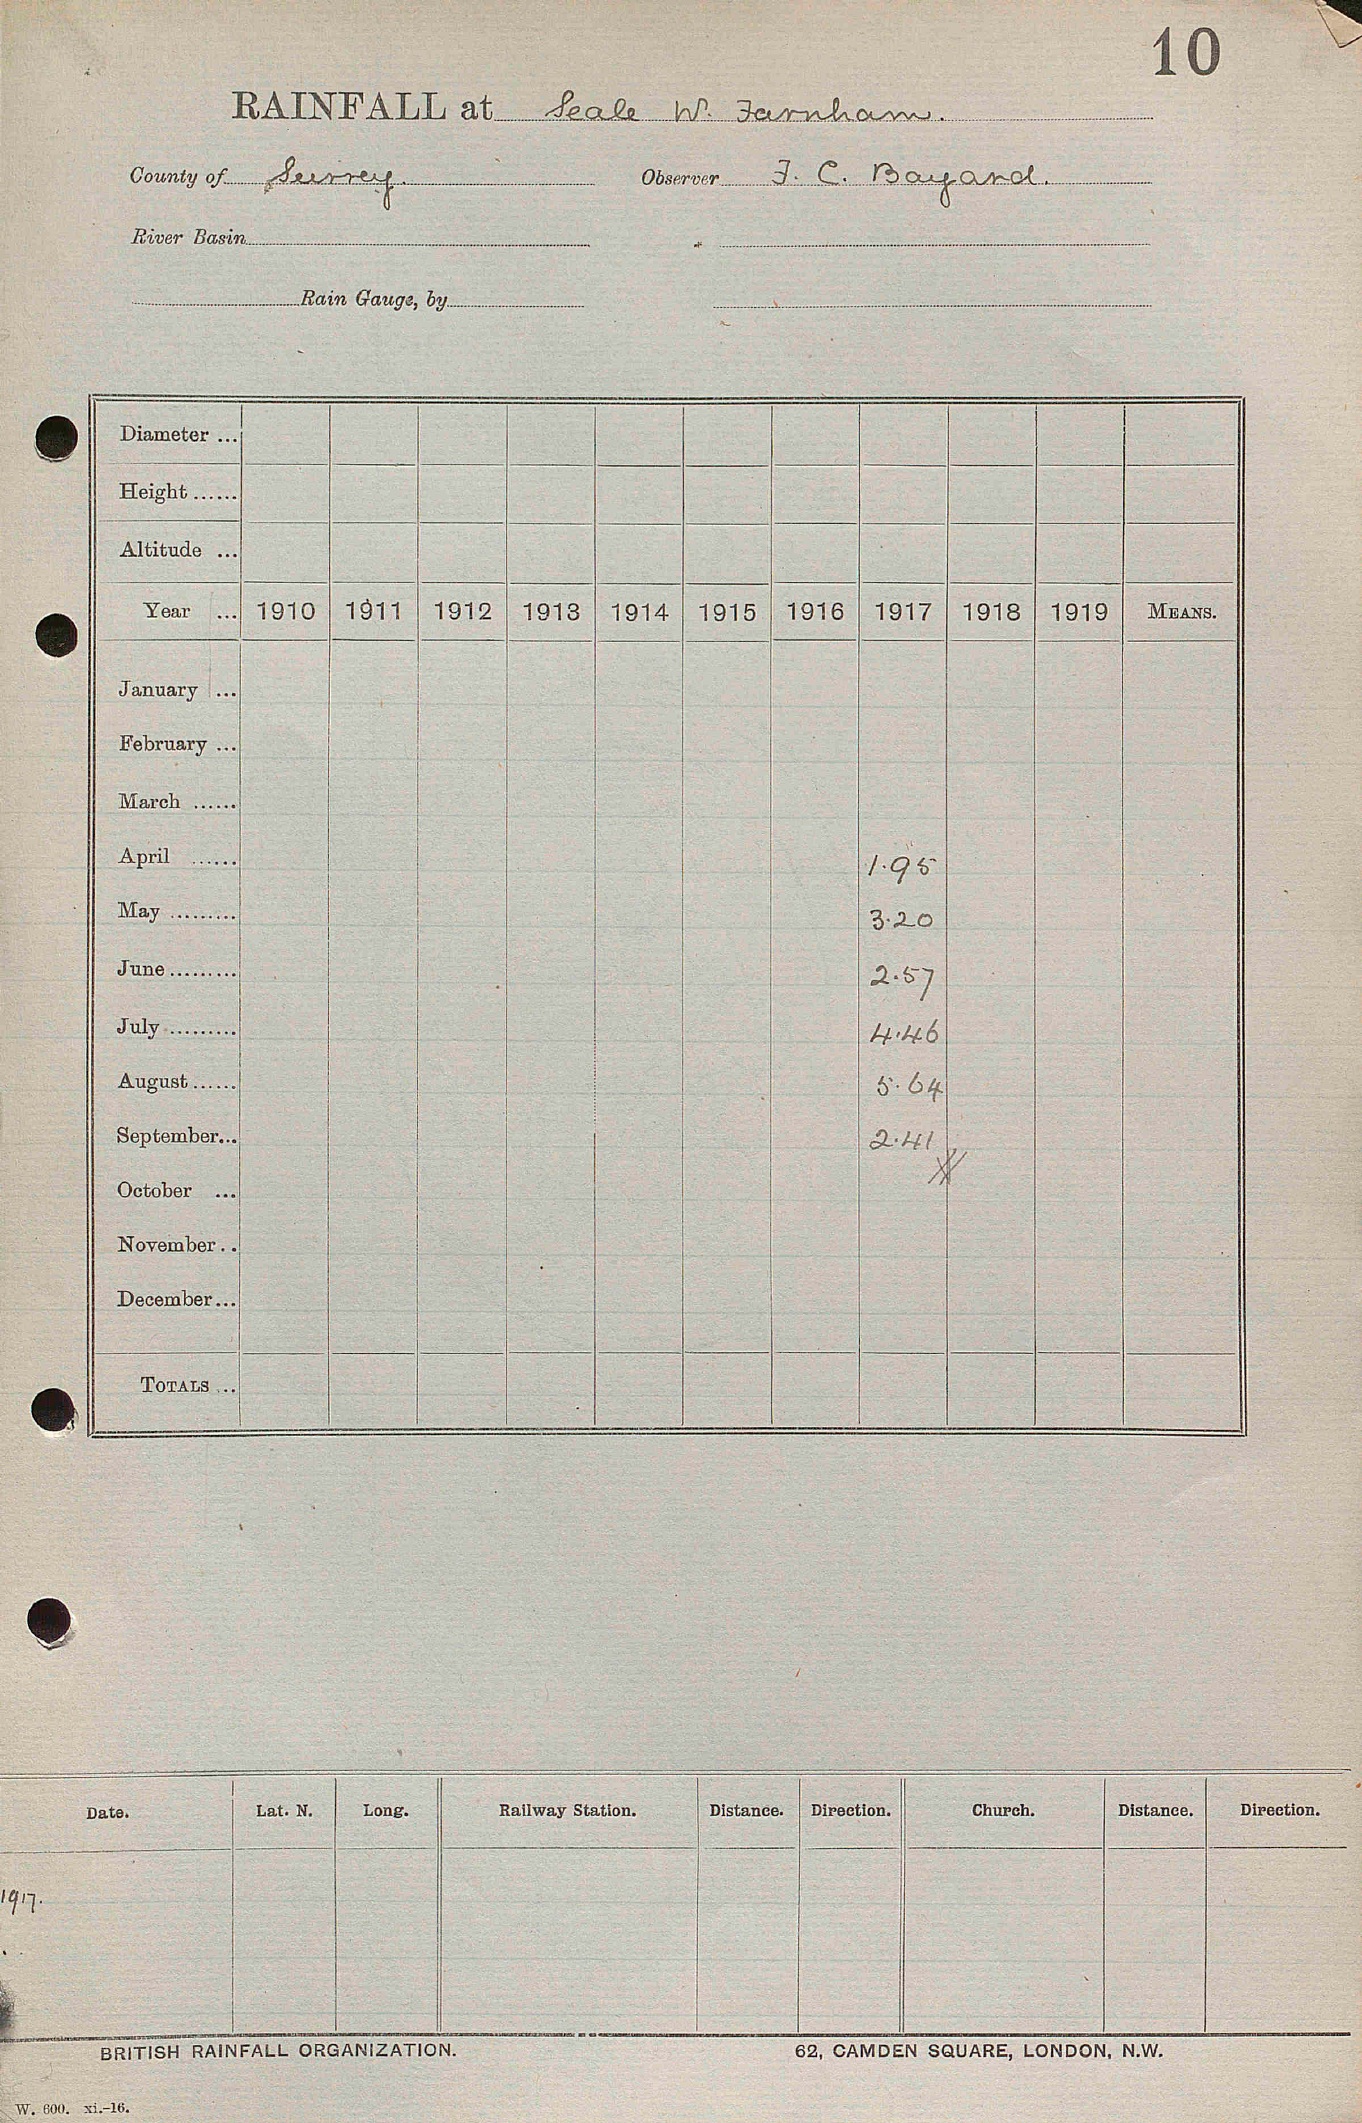 10
RAINFALL at Seale W. Farnham.
County of Surrey. Observer F. C. Bayard.
River Basin
Rain Gauge, by
Diameter ...
Height ......
Altitude ...
Year ... 1910 1911 1912 1913 1914 1915 1916 1917 1918 1919 MEANS.
January ...
February ...
March ......
April ...... 1.95
May ......... 3.20
June ......... 2.57
July ......... 4.46
August ...... 5.64
September... 2.41
October ...
November ..
December ...
TOTALS ...
Date. Lat. N. Long. Railway Station. Distance. Direction. Church. Distance. Direction.
1917.
BRITISH RAINFALL ORGANIZATION. 62, CAMDEN SQUARE, LONDON, N.W.
W. 600. xi.-16.